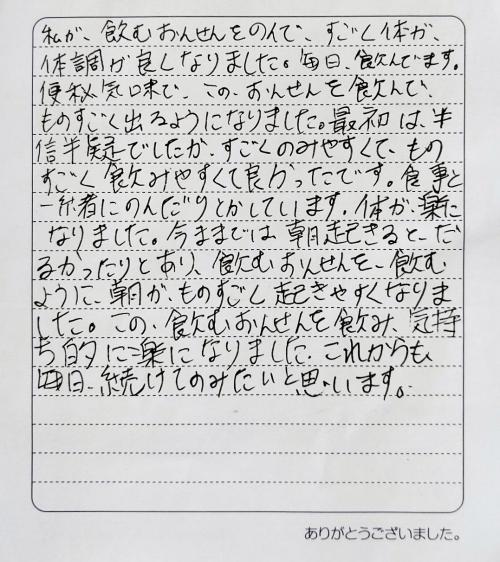 私が、飲むおんせんをのんで、すごく体が、
体調が良くなりました。毎日、飲んでます。
便秘気味で、この、おんせんを飲んで、
ものすごく出るようになりました。最初は、半
信半疑でしたが、すごくのみやすくて、もの
すごく飲みやすくて良かったです。食事と
一緒にのんだりとかしています。体が、楽に
なりました。今まままでは、朝起きると、だ
るかったりとあり、飲むおんせんを、飲む
ように、朝が、ものすごく起きやすくなりま
した。この、飲むおんせんを飲み、気持
ち的に楽になりました。これからも
毎日、続けてのみたいと思います。
ありがとうございました。